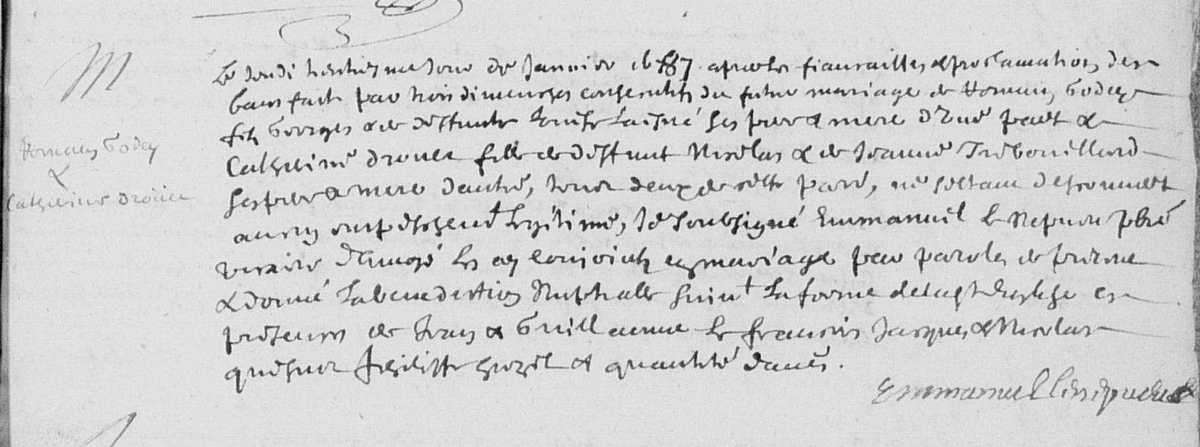 M
Romain Godey
&
Catherine Drouet
Le Jeudi trentiesme Jour de Janvier 1687 apres les fiancailles & proclamations des
bans faits par trois dimenches consecutifs du futur mariage de Romain Godey
fils Georges & de deffunte ses pere & mere d'une part &
Catherine Drouet fille de deffunt Nicolas & de Jeanne Trebouillard
ses pere & mere d'autre, tous deux de cette parr, ne sestant descouvert
aucun empeschemt legitime, Je soubsigné Emmanuel le pbre
vicaire les ay conjoints en mariage par paroles de presence
& donné la benediction Nuptialle suivt la forme de la Ste Eglise en
presence de & Guillaume le francois Jacques & Nicolas
& quantité daues.
Emmanuel